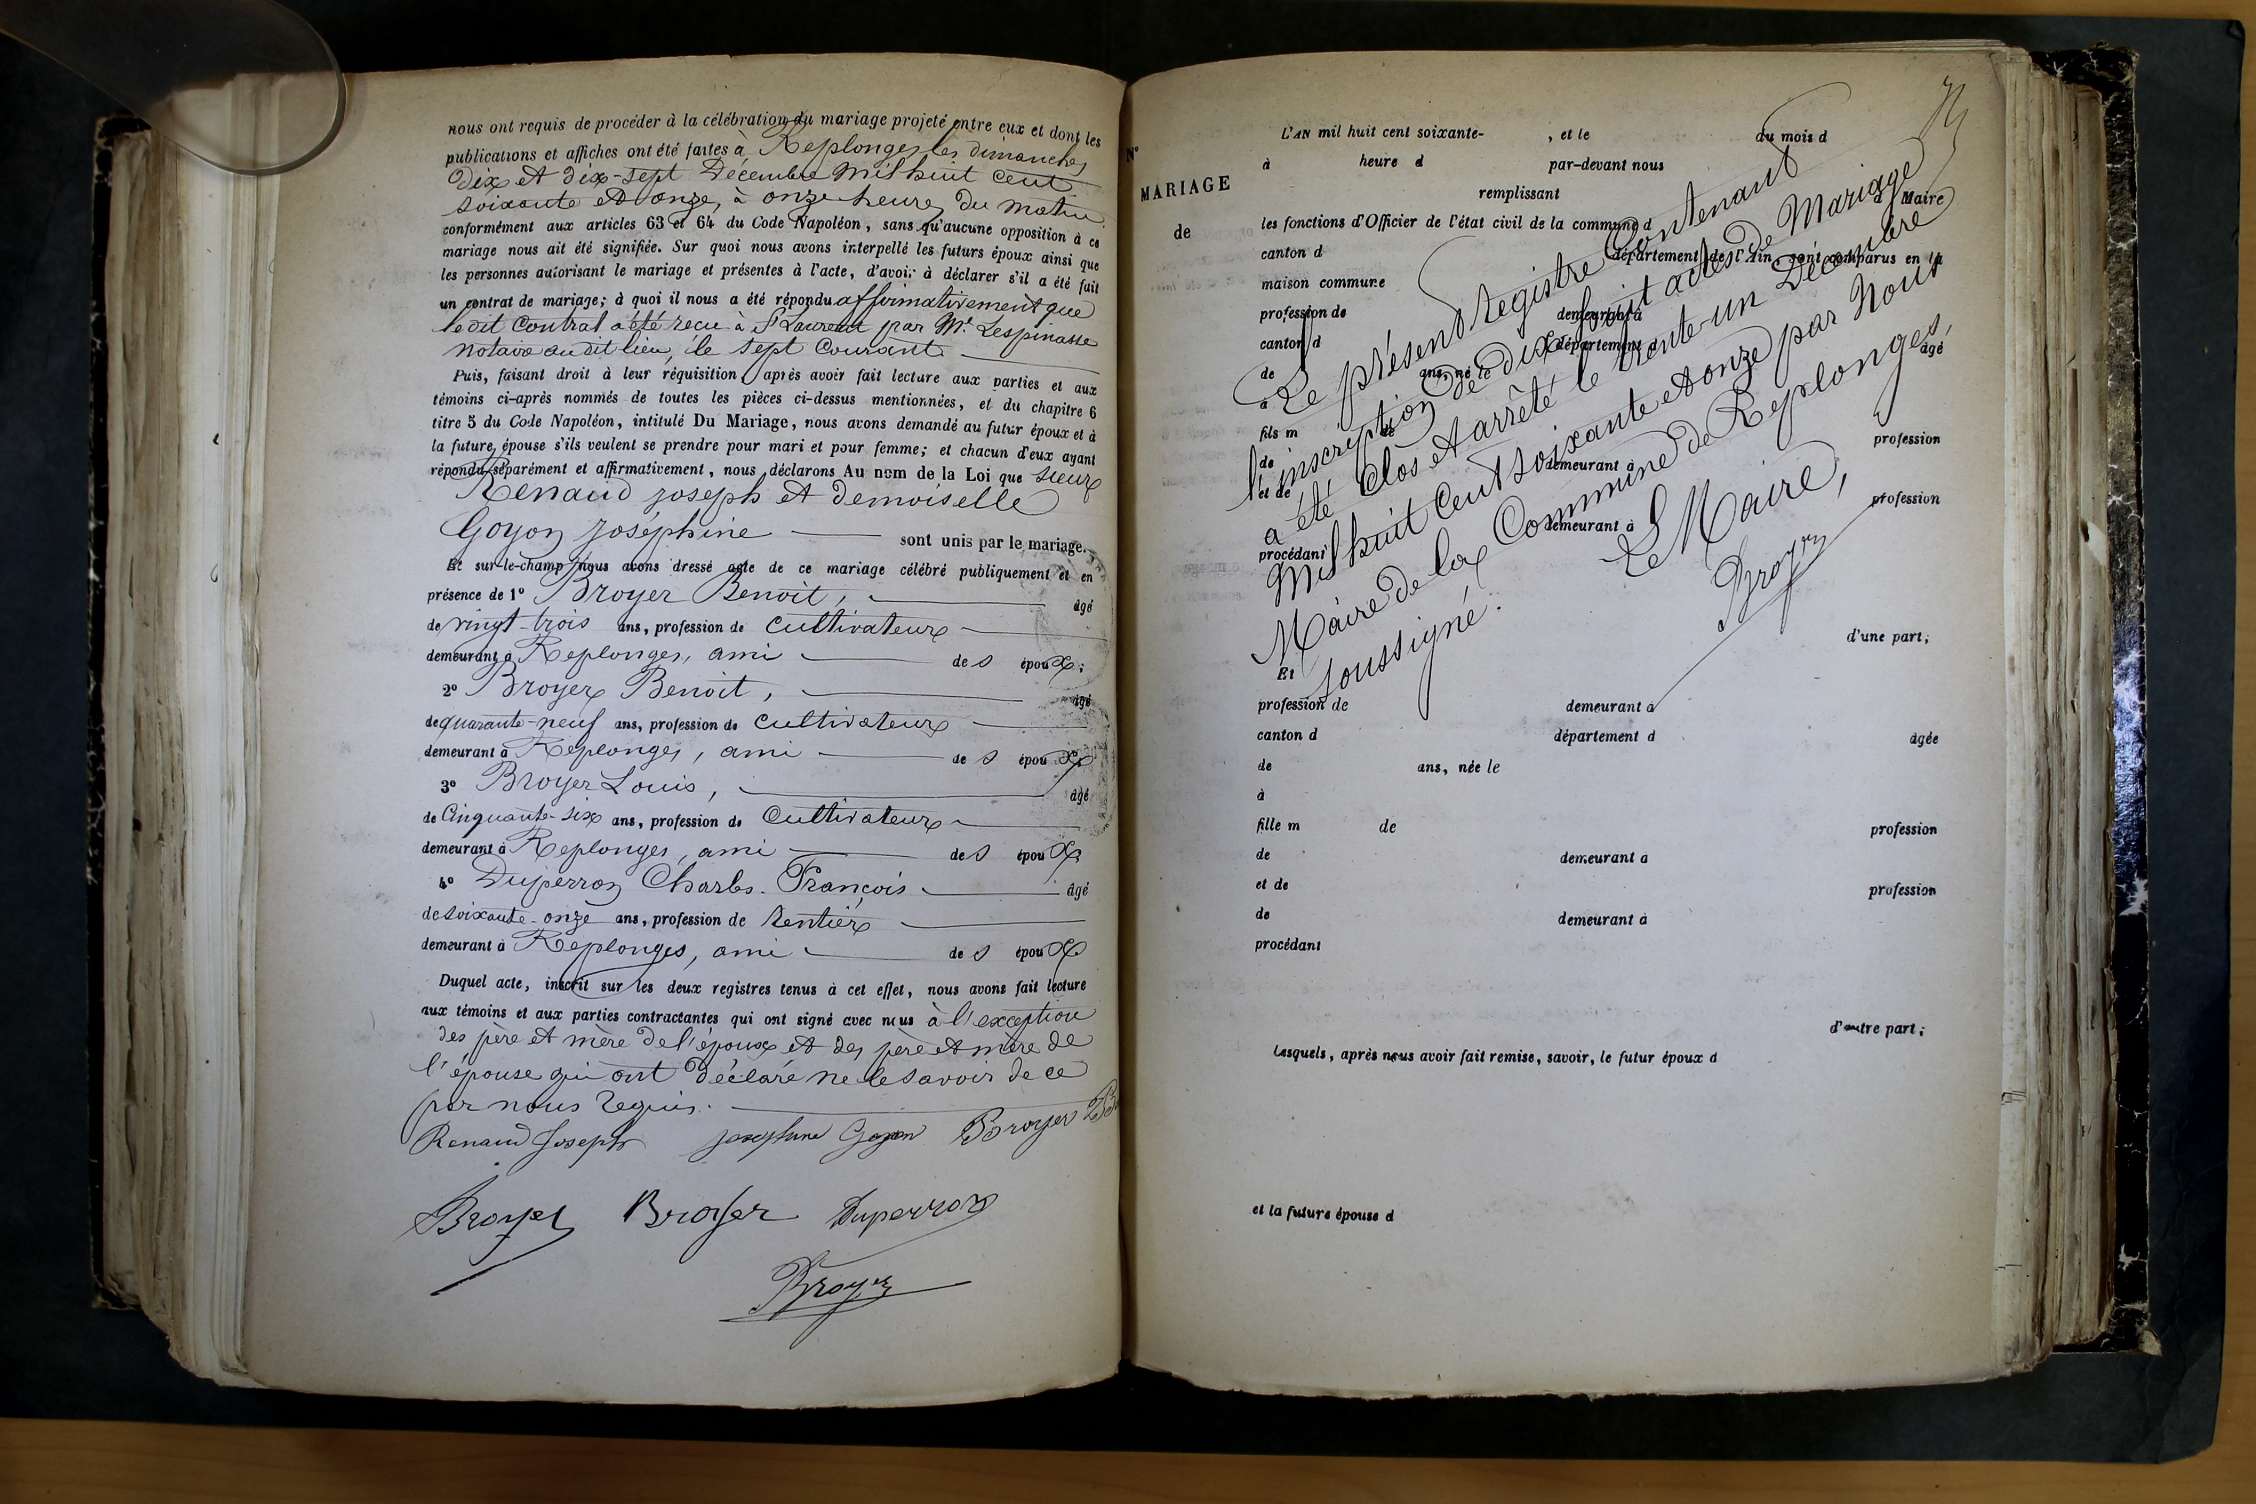 nous ont requis de procéder à la célébration du mariage projeté entre eux et dont les
publications et affiches ont été faites à Replonges les dimanches
dix et dix-sept Décembre mil huit cent
soixante et onze, à onze heures du matin
conformément aux articles 63 et 64 du Code Napoléon, sans qu'aucune opposition à ce
mariage nous ait été signifiée. Sur quoi nous avons interpellé les futurs époux ainsi que
les personnes autorisant le mariage et présentes à l'acte, d'avoir à déclarer s'il a été fait
un contrat de mariage; à quoi il nous a été répondu affirmativement que
le dit Contrat a été reçu à St Laurent par Me Lespinasse
notaire au dit lieu, le sept Courant.
Puis, faisant droit à leur réquisition, après avoir fait lecture aux parties et aux
témoins ci-après nommés de toutes les pièces ci-dessus mentionnées, et du chapitre 6
titre 5 du Code Napoléon, intitulé Du Mariage, nous avons demandé au futur époux et à
la future épouse s'ils veulent se prendre pour mari et pour femme; et chacun d'eux ayant
répondu séparément et affirmativement, nous déclarons Au nom de la Loi que sieur
Renaud joseph et demoiselle
Goyon joséphine sont unis par le mariage.
Et sur-le-champ nous avons dressé acte de ce mariage célébré publiquement et en
présence de 1° Broyer Benoit, âgé
de vingt-trois ans, profession de Cultivateur
demeurant à Replonges, ami de s époux;
2° Broyer Benoit, âgé
de quarante-neuf ans, profession de cultivateur
demeurant à Replonges, ami de s époux
3° Broyer Louis, âgé
de Cinquante-six ans, profession de Cultivateur
demeurant à Replonges, ami de s époux
4° Duperron Charles-François âgé
de soixante-onze ans, profession de rentier
demeurant à Replonges, ami de s époux
Duquel acte, inscrit sur les deux registres tenus à cet effet, nous avons fait lecture
aux témoins et aux parties contractantes qui ont signé avec nous à l'exception
des père et mère de l'époux et des père et mère de
l'épouse qui ont déclaré ne le savoir de ce
par nous requis.
Renaud Joseph joséphine Goyon Broyer
Broyer Broyer Duperron
Broyer
N°
MARIAGE
de
L'AN mil huit cent soixante- , et le du mois d
à heure d par-devant nous
remplissant
Maire
les fonctions d'Officier de l'état civil de la commune d
canton d département de l'Ain, sont comparus en la
maison commune
profession de demeurant à
canton d département d
de ans, né le âgé
à
fils m de
profession
de demeurant à
et de
profession
demeurant à
procédant
Le présent Registre Contenant
l'inscription de dix huit actes de Mariage
a été Clos et arrêté le trente-un Décembre
Mil huit Cent soixante et onze par Nous
Maire de la Commune de Replonges,
soussigné.
Le Maire,
Broyer
d'une part;
Et
profession de demeurant à
canton d département d âgée
de ans, née le
à
fille m de profession
de demeurant à
et de profession
de demeurant à
procédant
d'autre part;
Lesquels, après nous avoir fait remise, savoir, le futur époux d
et la future épouse d